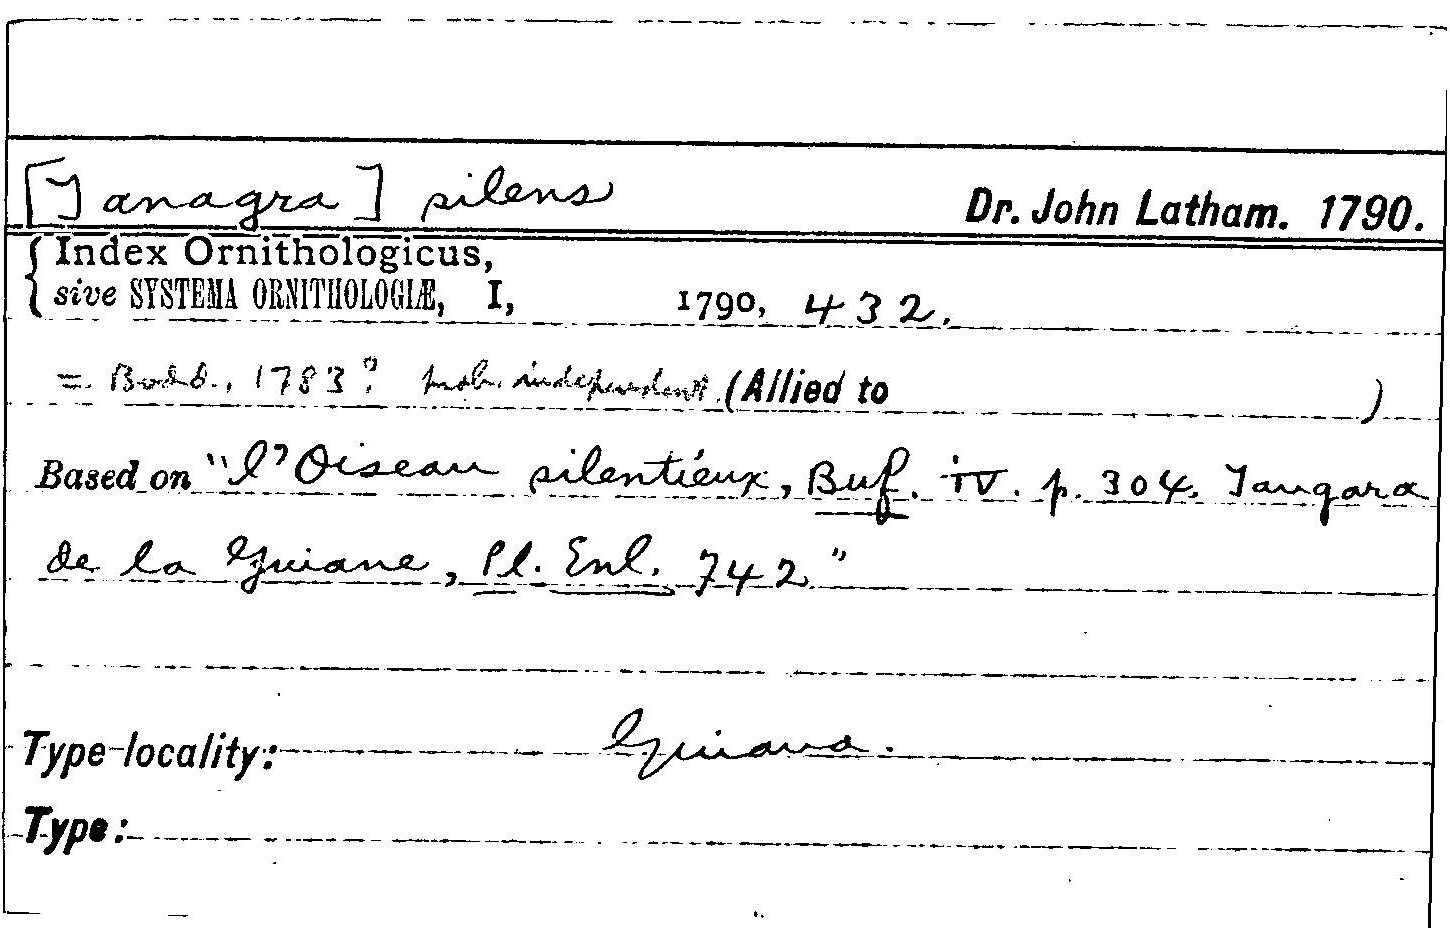 [Tanagra] silens Dr. John Latham. 1790.
Index Ornithologicus,
sive SYSTEMA ORNITHOLOGIÆ, I, 1790, 432.
= Bodd., 1783? prob. independent (Allied to )
Based on "l'Oiseau silentieux, Buf. iv. p. 304. Tangara
de la Guiane, Pl. Enl. 742"
Type-locality: Guiana.
Type: